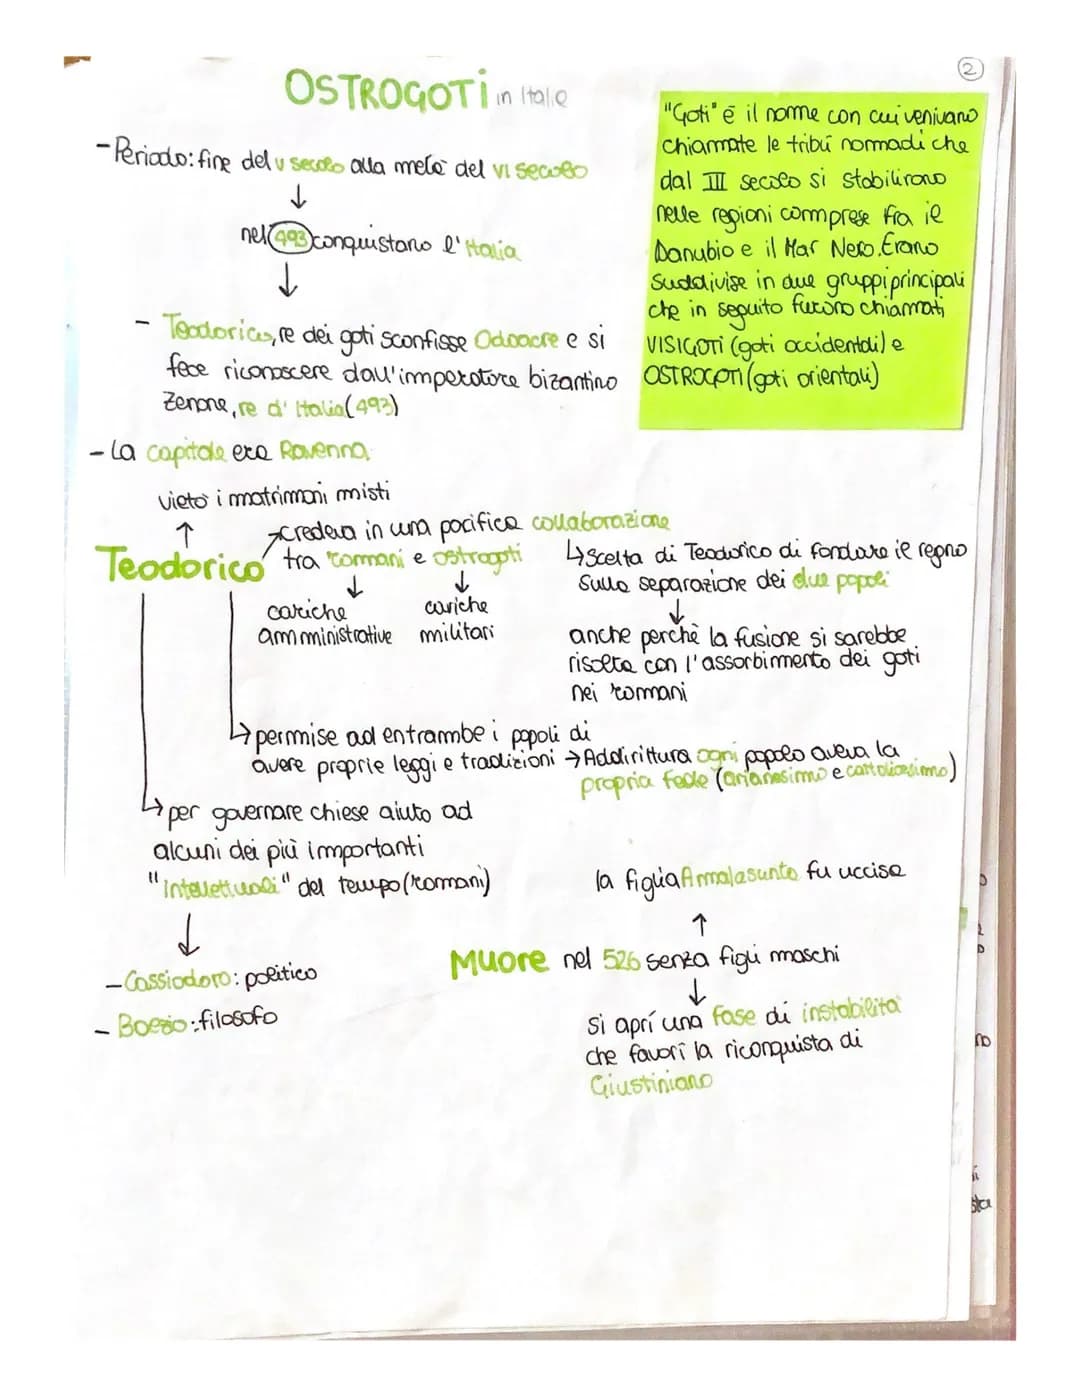 2
OSTROGOTI in Italia
- Periodo: fine del V secolo alla metà del VI secolo
↓
nel 493 conquistano l'Italia
↓
- Teodorico, re dei goti sconfisse Odoacre e si
fece riconoscere dall'imperatore bizantino
Zenone, re d'Italia (493)
"Goti" è il nome con cui venivano
chiamate le tribù nomadi che
dal III secolo si stabilirono
nelle regioni comprese fra il
Danubio e il Mar Nero. Erano
suddivise in due gruppi principali
che in seguito furono chiamati
VISIGOTI (goti occidentali) e
OSTROGOTI (goti orientali)
- La capitale era Ravenna
vietò i matrimoni misti
↑
Teodorico
↗ credeva in una pacifica collaborazione
tra romani e ostrogoti
↓ ↓
cariche cariche
amministrative militari
↳ Scelta di Teodorico di fondare il regno
sulla separazione dei due popoli
↓
anche perchè la fusione si sarebbe
risolta con l'assorbimento dei goti
nei romani
↳ permise ad entrambe i popoli di
avere proprie leggi e tradizioni → Addirittura ogni popolo aveva la
propria fede (arianesimo e cattolicesimo)
↳ per governare chiese aiuto ad
alcuni dei più importanti
"intellettuali" del tempo (romani)
↓
- Cassiodoro: politico
- Boezio: filosofo
la figlia Amalasunta fu uccisa
↑
Muore nel 526 senza figli maschi
↓
si aprí una fase di instabilità
che favorí la riconquista di
Giustiniano